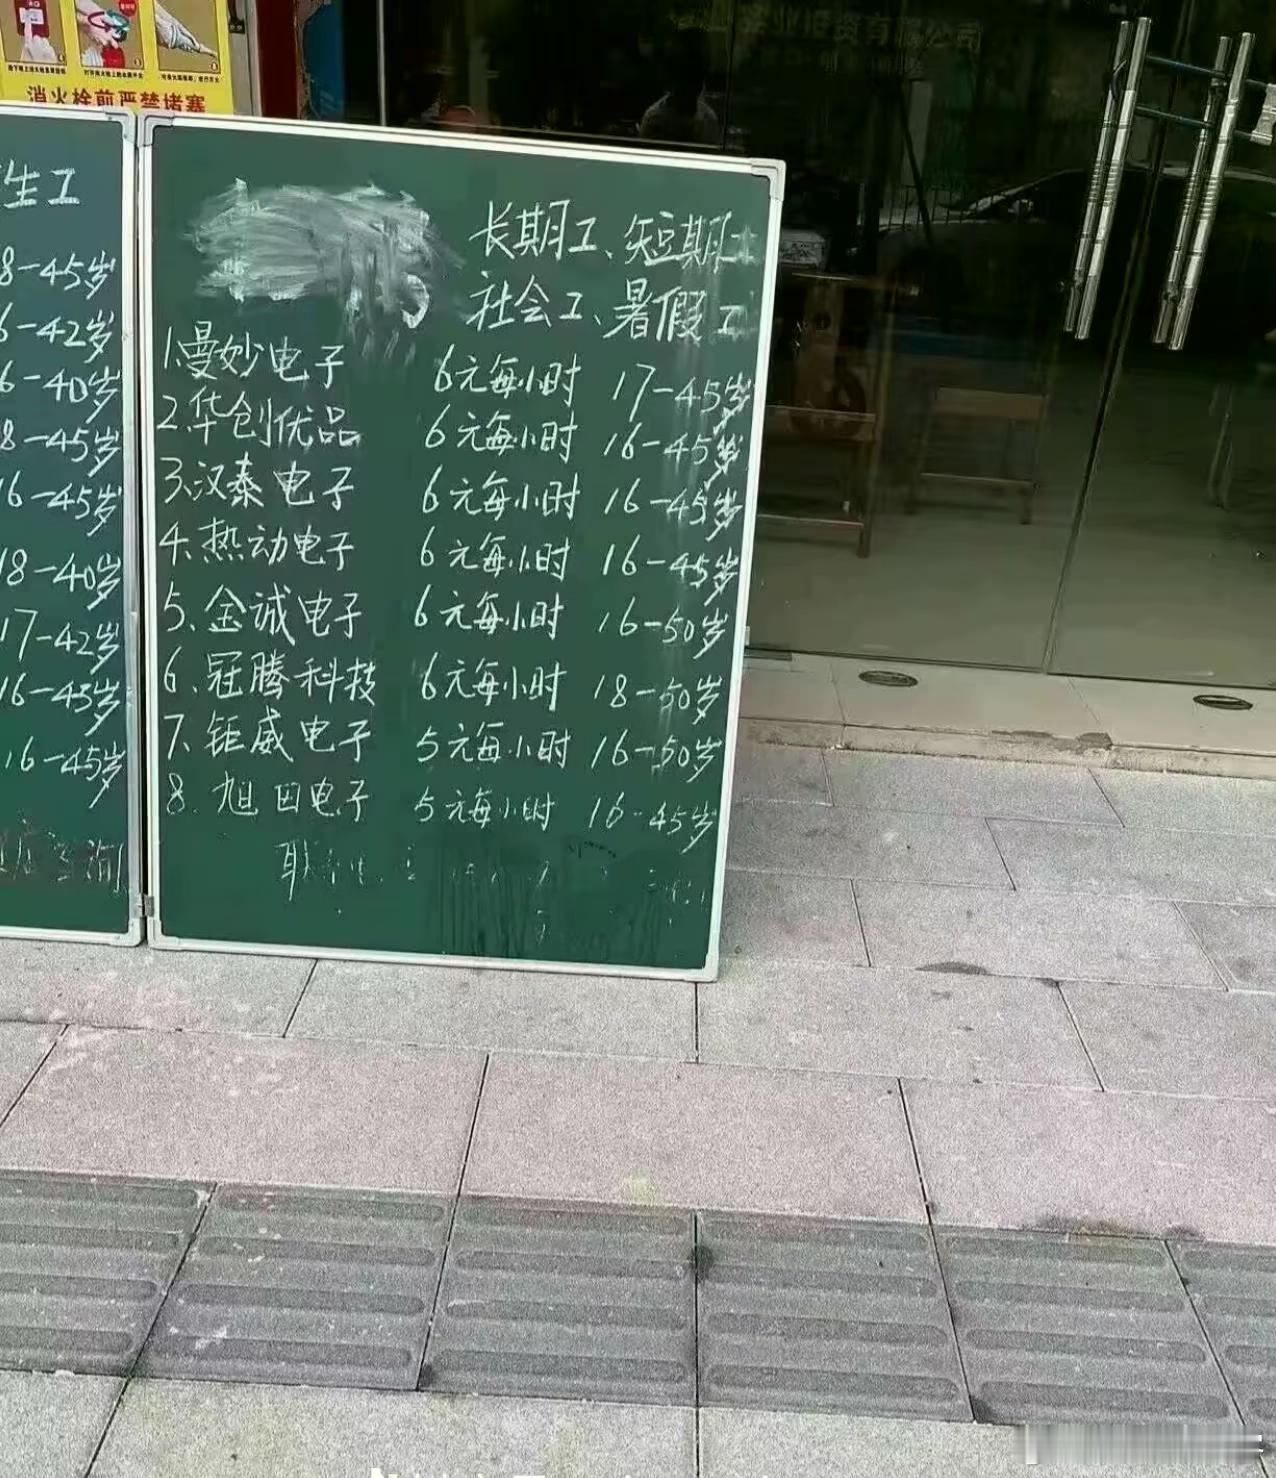 消火栓前严禁堵塞
生工
8-45岁
6-42岁
6-40岁
8-45岁
16-45岁
18-40岁
17-42岁
16-45岁
16-45岁
长期工、短期工
社会工、暑假工
1.曼妙电子 6元每小时 17-45岁
2.华创优品 6元每小时 16-45岁
3.汉泰电子 6元每小时 16-45岁
4.热动电子 6元每小时 16-45岁
5.金诚电子 6元每小时 16-50岁
6.冠腾科技 6元每小时 18-50岁
7.钜威电子 5元每小时 16-50岁
8.旭田电子 5元每小时 16-45岁
业投资有限公司